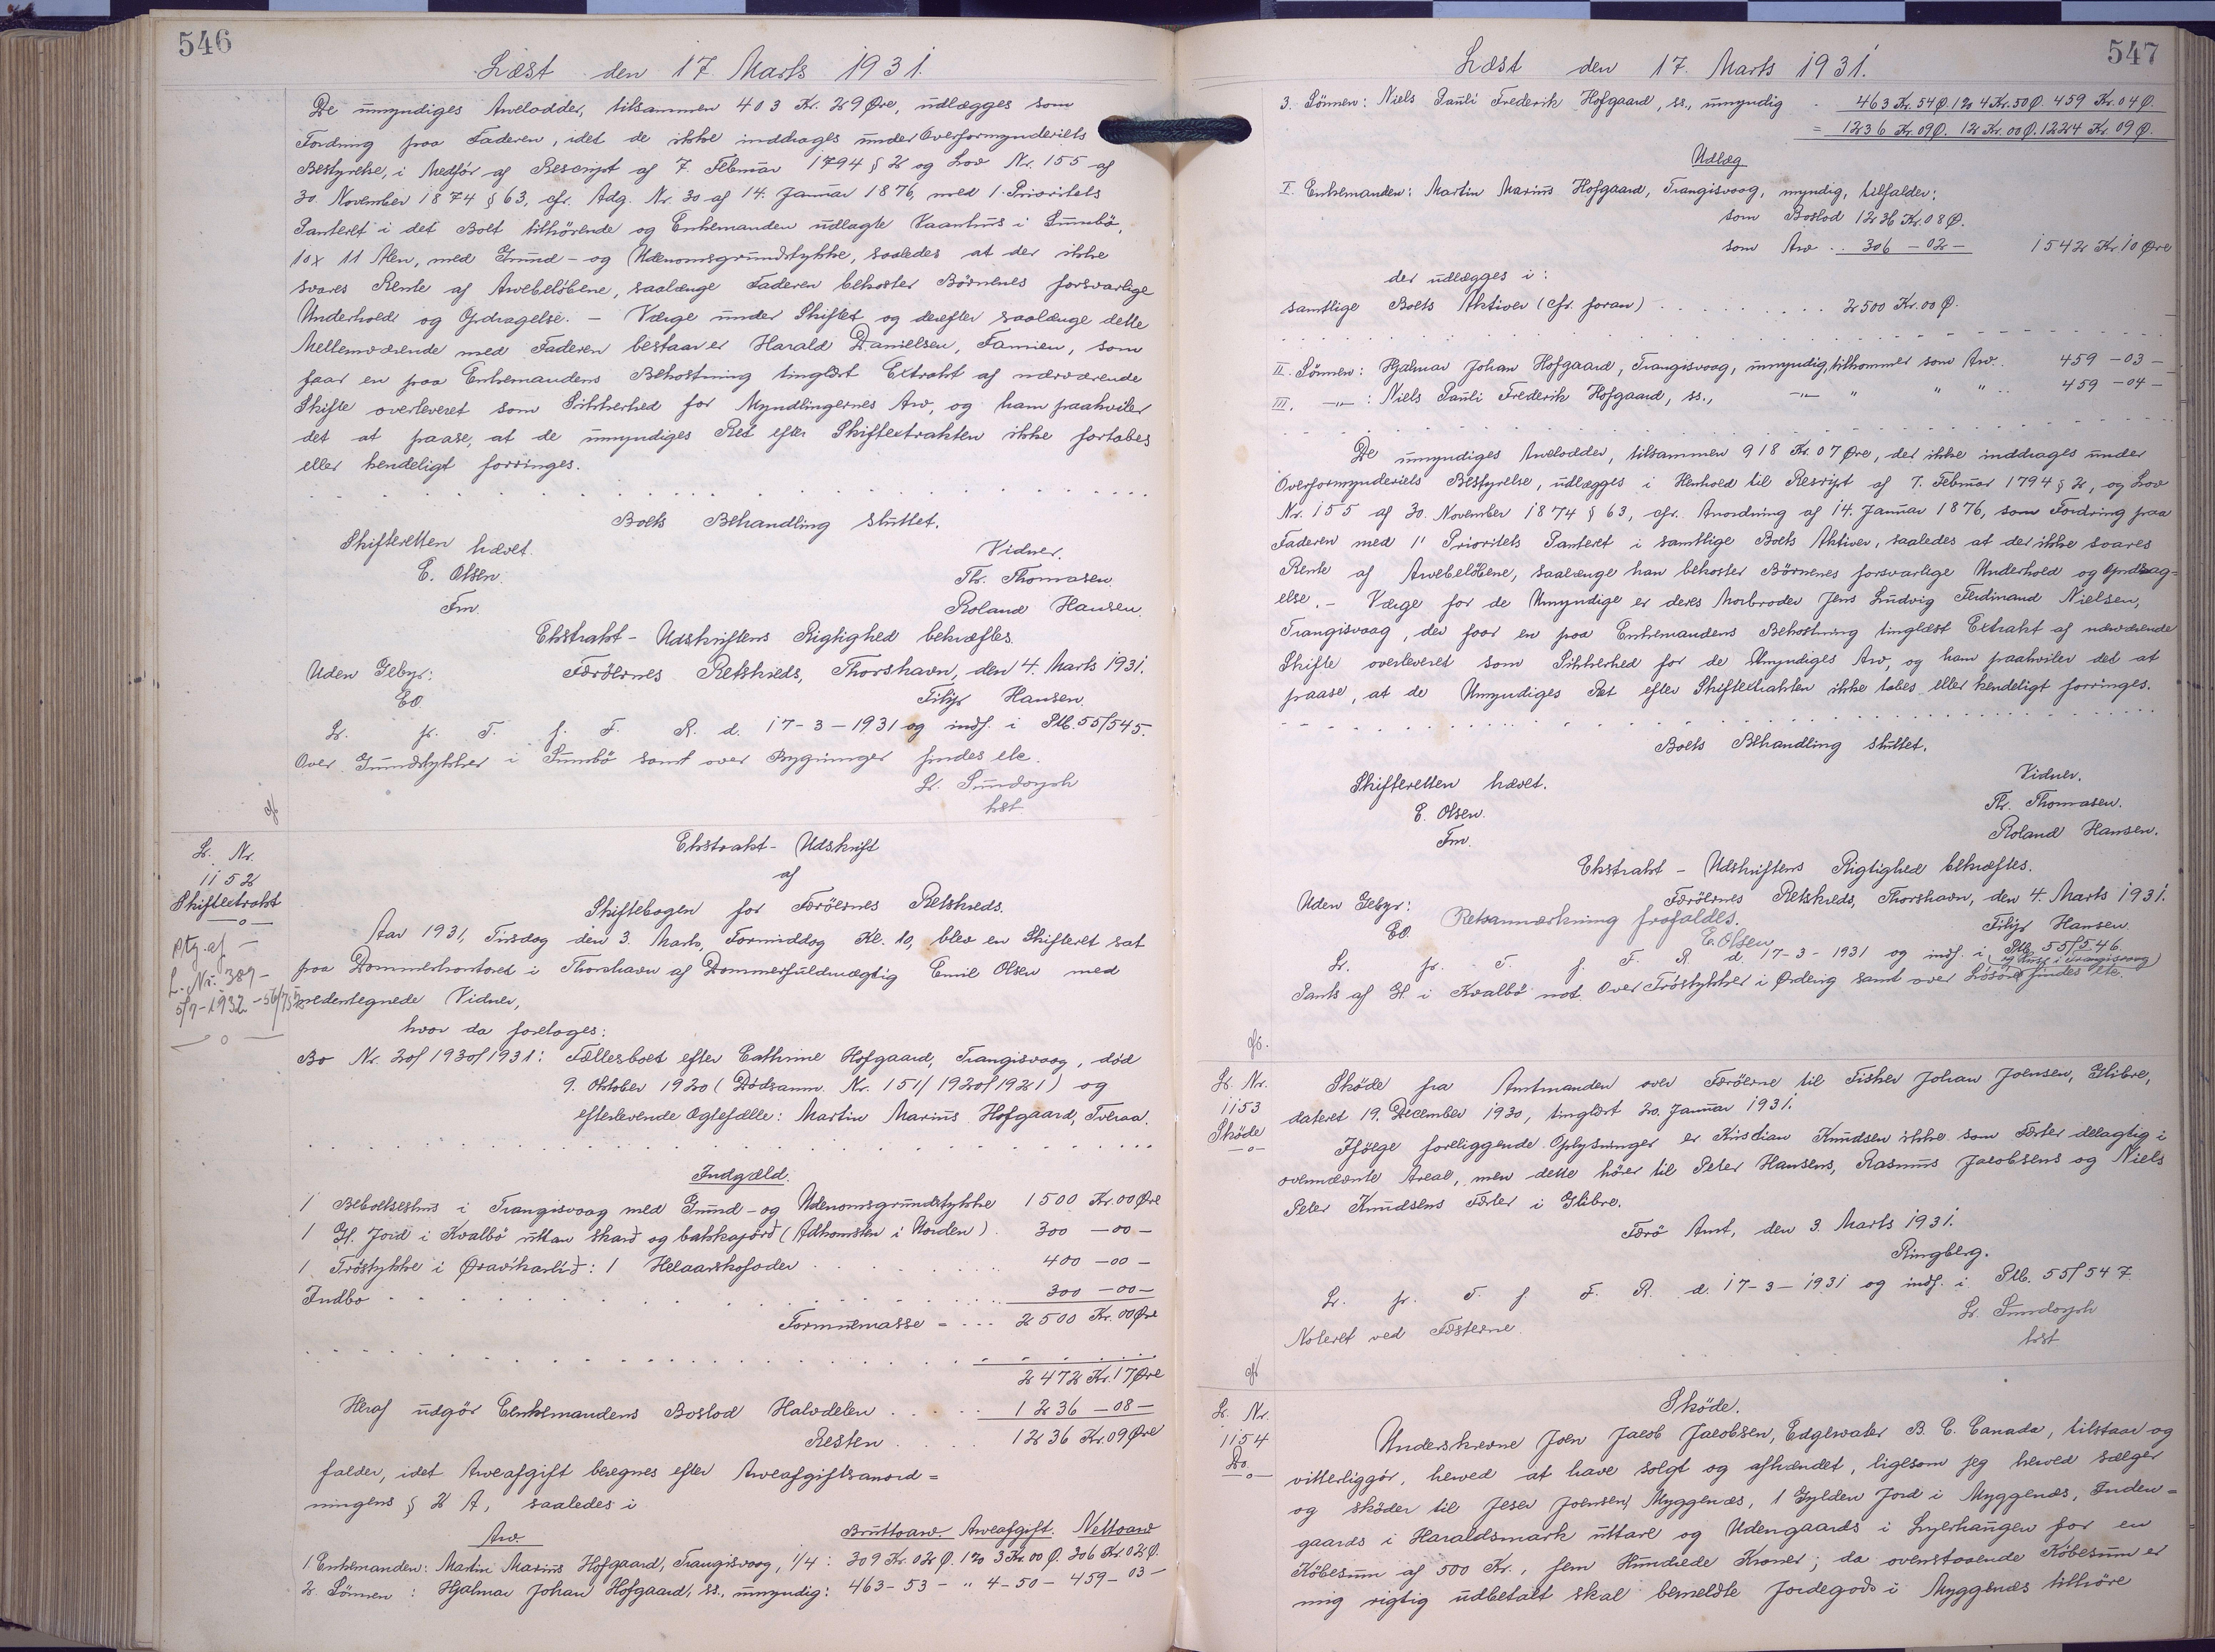 546
Læst den 17. Marts 1931.
De umyndiges Arvelodder, tilsammen 403 Kr. 29 Øre, udlægges som
Fordring paa Faderen, idet de ikke inddrages under Overformynderiets
Bestyrelse, i Medfør af Rescript af 7. Februar 1794 § 2 og Lov Nr. 155 af
30. November 1874 § 63, cfr. Adg. Nr. 30 af 14. Januar 1876, med 1. Prioritets
Panteret i det Boet tilhørende og Enkemanden udlagte Vaanhus i Sumbø,
10 x 11 Alen, med Grund- og Udenomsgrundstykke, saaledes at der ikke
svares Rente af Arvebeløbene, saalænge Faderen bekoster Børnenes forsvarlige
Underhold og Opdragelse. – Værge under Skiftet og derefter saalænge dette
Mellemværende med Faderen bestaar er Harald Danielsen, Famien, som
faar en paa Enkemandens Bekostning tinglæst Extrakt af nærværende
Skifte overleveret som Sikkerhed for Myndlingernes Arv, og ham paahviler
det at paase, at de umyndiges Ret efter Skifteextrakten ikke fortabes
eller kendeligt forringes.
Boets Behandling sluttet.
Skifteretten hævet.
Vidner.
E. Olsen.
Th. Thomasen.
Fm.
Roland Hansen.
Ekstrakt-Udskriftens Rigtighed bekræftes.
Uden Gebyr:
Færøernes Retskreds, Thorshavn, den 4. Marts 1931.
EO
Filip Hansen.
L. fr. T. f. F. R. d. 17-3-1931 og indf. i Ptb. 55/545.
Over Grundstykker i Sumbø samt over Bygninger findes ele.
L. Sundorph
kst.
L. Nr.
1152
Skifteextrakt
—o—
Ptg. af
L. Nr. 389 -
5/7-1932 - 56/75
—o—
Ekstrakt-Udskrift
af
Skiftebogen for Færøernes Retskreds.
Aar 1931, Tirsdag den 3. Marts, Formiddag Kl. 10, blev en Skifteret sat
paa Dommerkontoret i Thorshavn af Dommerfuldmægtig Emil Olsen med
nedentegnede Vidner,
hvor da foretoges:
Bo Nr. 20/1930/1931: Fællesboet efter Cathrine Hofgaard, Trangisvaag, død
9. Oktober 1920 (Dødsanm. Nr. 151/1920/1921) og
efterlevende Ægtefælle: Martin Marius Hofgaard, Tveraa.
Indgæld.
1 Beboelseshus i Trangisvaag med Grund- og Udenomsgrundstykke 1500 Kr. 00 Øre
1 Gl. Jord i Kvalbø uttan skard og bakkajørd (Adkomsten i Norden) . 300 - 00 -
1 Trøstykke i Øravíkarlíd: 1 Helaarskofoder . 400 - 00 -
Indbo . 300 - 00 -
Formuemasse = ... 2500 Kr. 00 Øre
2472 Kr. 17 Øre
Heraf udgør Enkemandens Boslod Halvdelen . 1236 - 08 -
Resten . 1236 Kr. 09 Øre
falder, idet Arveafgift beregnes efter Arveafgiftsanord=
ningens § 2 A, saaledes i
Arv Bruttoarv. Arveafgift. Nettoarv
1. Enkemanden: Martin Marius Hofgaard, Trangisvaag, 1/4: 309 Kr. 02 Ø. 1% 3 Kr 00 Ø. 306 Kr. 02 Ø.
2. Sønnen: Hjalmar Johan Hofgaard, ss., umyndig: 463 - 53 - " 4 - 50 - 459 - 03 -
547
Læst den 17. Marts 1931.
3. Sønnen: Niels Pauli Frederik Hofgaard, ss., umyndig . 463 Kr. 54 Ø. 1% 4 Kr. 50 Ø. 459 Kr. 04 Ø.
= 1236 Kr. 09 Ø. 12 Kr. 00 Ø. 1224 Kr. 09 Ø.
Udlæg
I. Enkemanden: Martin Marius Hofgaard, Trangisvaag, myndig, tilfalder:
som Boslod 1236 Kr. 08 Ø.
som Arv .. 306 - 02 - 1542 Kr. 10 Øre
der udlægges i:
samtlige Boets Aktiver (cfr. foran) . 2500 Kr. 00 Ø.
II. Sønnen: Hjalmar Johan Hofgaard, Trangisvaag, umyndig, tilkommer som Arv.. 459 - 03 -
III. -"- : Niels Pauli Frederik Hofgaard, ss., -"- " " " .. 459 - 04 -
De umyndiges Arvelodder, tilsammen 918 Kr. 07 Øre, der ikke inddrages under
Overformynderiets Bestyrelse, udlægges i Henhold til Rescript af 7. Februar 1794 § 2, og Lov
Nr. 155 af 30. November 1874 § 63, cfr. Anordning af 14. Januar 1876, som Fordring paa
Faderen med 1' Prioritets Panteret i samtlige Boets Aktiver, saaledes at der ikke svares
Rente af Arvebeløbene, saalænge han bekoster Børnenes forsvarlige Underhold og Opdrag=
else. – Værge for de Umyndige er deres Morbroder Jens Ludvig Ferdinand Nielsen,
Trangisvaag, der faar en paa Enkemandens Bekostning tinglæst Extrakt af nærværende
Skifte overleveret som Sikkerhed for de Umyndiges Arv, og ham paahviler det at
paase, at de Umyndiges Ret efter Skifteextrakten ikke tabes eller kendeligt forringes.
Boets Behandling sluttet.
Skifteretten hævet.
Vidner.
E. Olsen.
Th. Thomasen.
Fm.
Roland Hansen.
Ekstrakt-Udskriftens Rigtighed bekræftes.
Uden Gebyr:
Færøernes Retskreds, Thorshavn, den 4. Marts 1931.
EO.
Retsanmærkning frafaldes.
Filip Hansen.
E. Olsen
L. fr. T. f. F. R. d. 17-3-1931 og indf. i Ptb. 55/546.
(og Hus i Trangisvaag)
Pants af Gl. i Kvalbø not. Over Trøstykker i Ørdevig samt over Løsøre findes ele.
L. Nr.
1153
Skøde
—o—
Skøde fra Amtmanden over Færøerne til Fisker Johan Joensen, Glibre,
dateret 19. December 1930, tinglæst 20. Januar 1931.
Ifølge foreliggende Oplysninger er Kristian Knudsen ikke som Fæster delagtig i
ovennævnte Areal, men dette hører til Peter Hansens, Rasmus Jacobsens og Niels
Peter Knudsens Fæster i Glibre.
Færø Amt, den 3. Marts 1931.
Ringberg.
L. fr. T. f. F. R. d. 17-3-1931 og indf. i Ptb. 55/547.
Noteret ved Fæsterne.
L. Sundorph
kst
L. Nr.
1154
Do.
—o—
Skøde.
Underskrevne Joen Jacob Jacobsen, Edgewater B. C. Canada, tilstaar og
vitterliggør, herved at have solgt og afhændet, ligesom jeg herved sælger
og skøder til Jeser Joensen, Myggenæs, 1 Gylden Jord i Myggenæs, Inden=
gaards i Haraldsmark uttare og Udengaards i Lyerhaugen for en
Købesum af 500 Kr., fem Hundrede Kroner; da ovenstaaende Købesum er
mig rigtig udbetalt skal bemeldte Jordegods i Myggenæs tilhøre